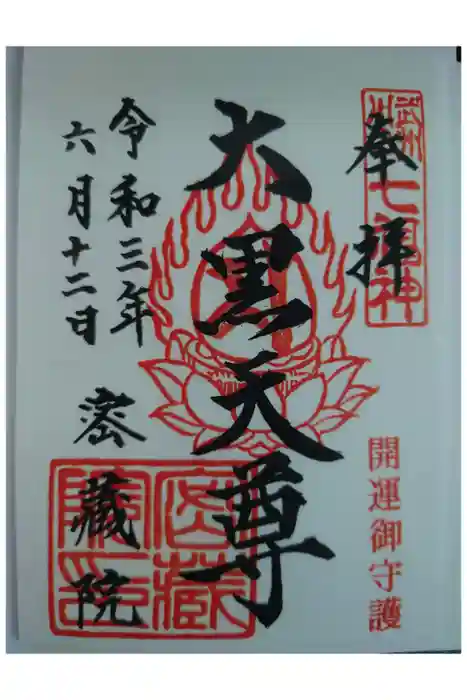 奉拝
七福神
開運御守護
大黒天尊
令和三年
六月十二日
密蔵院